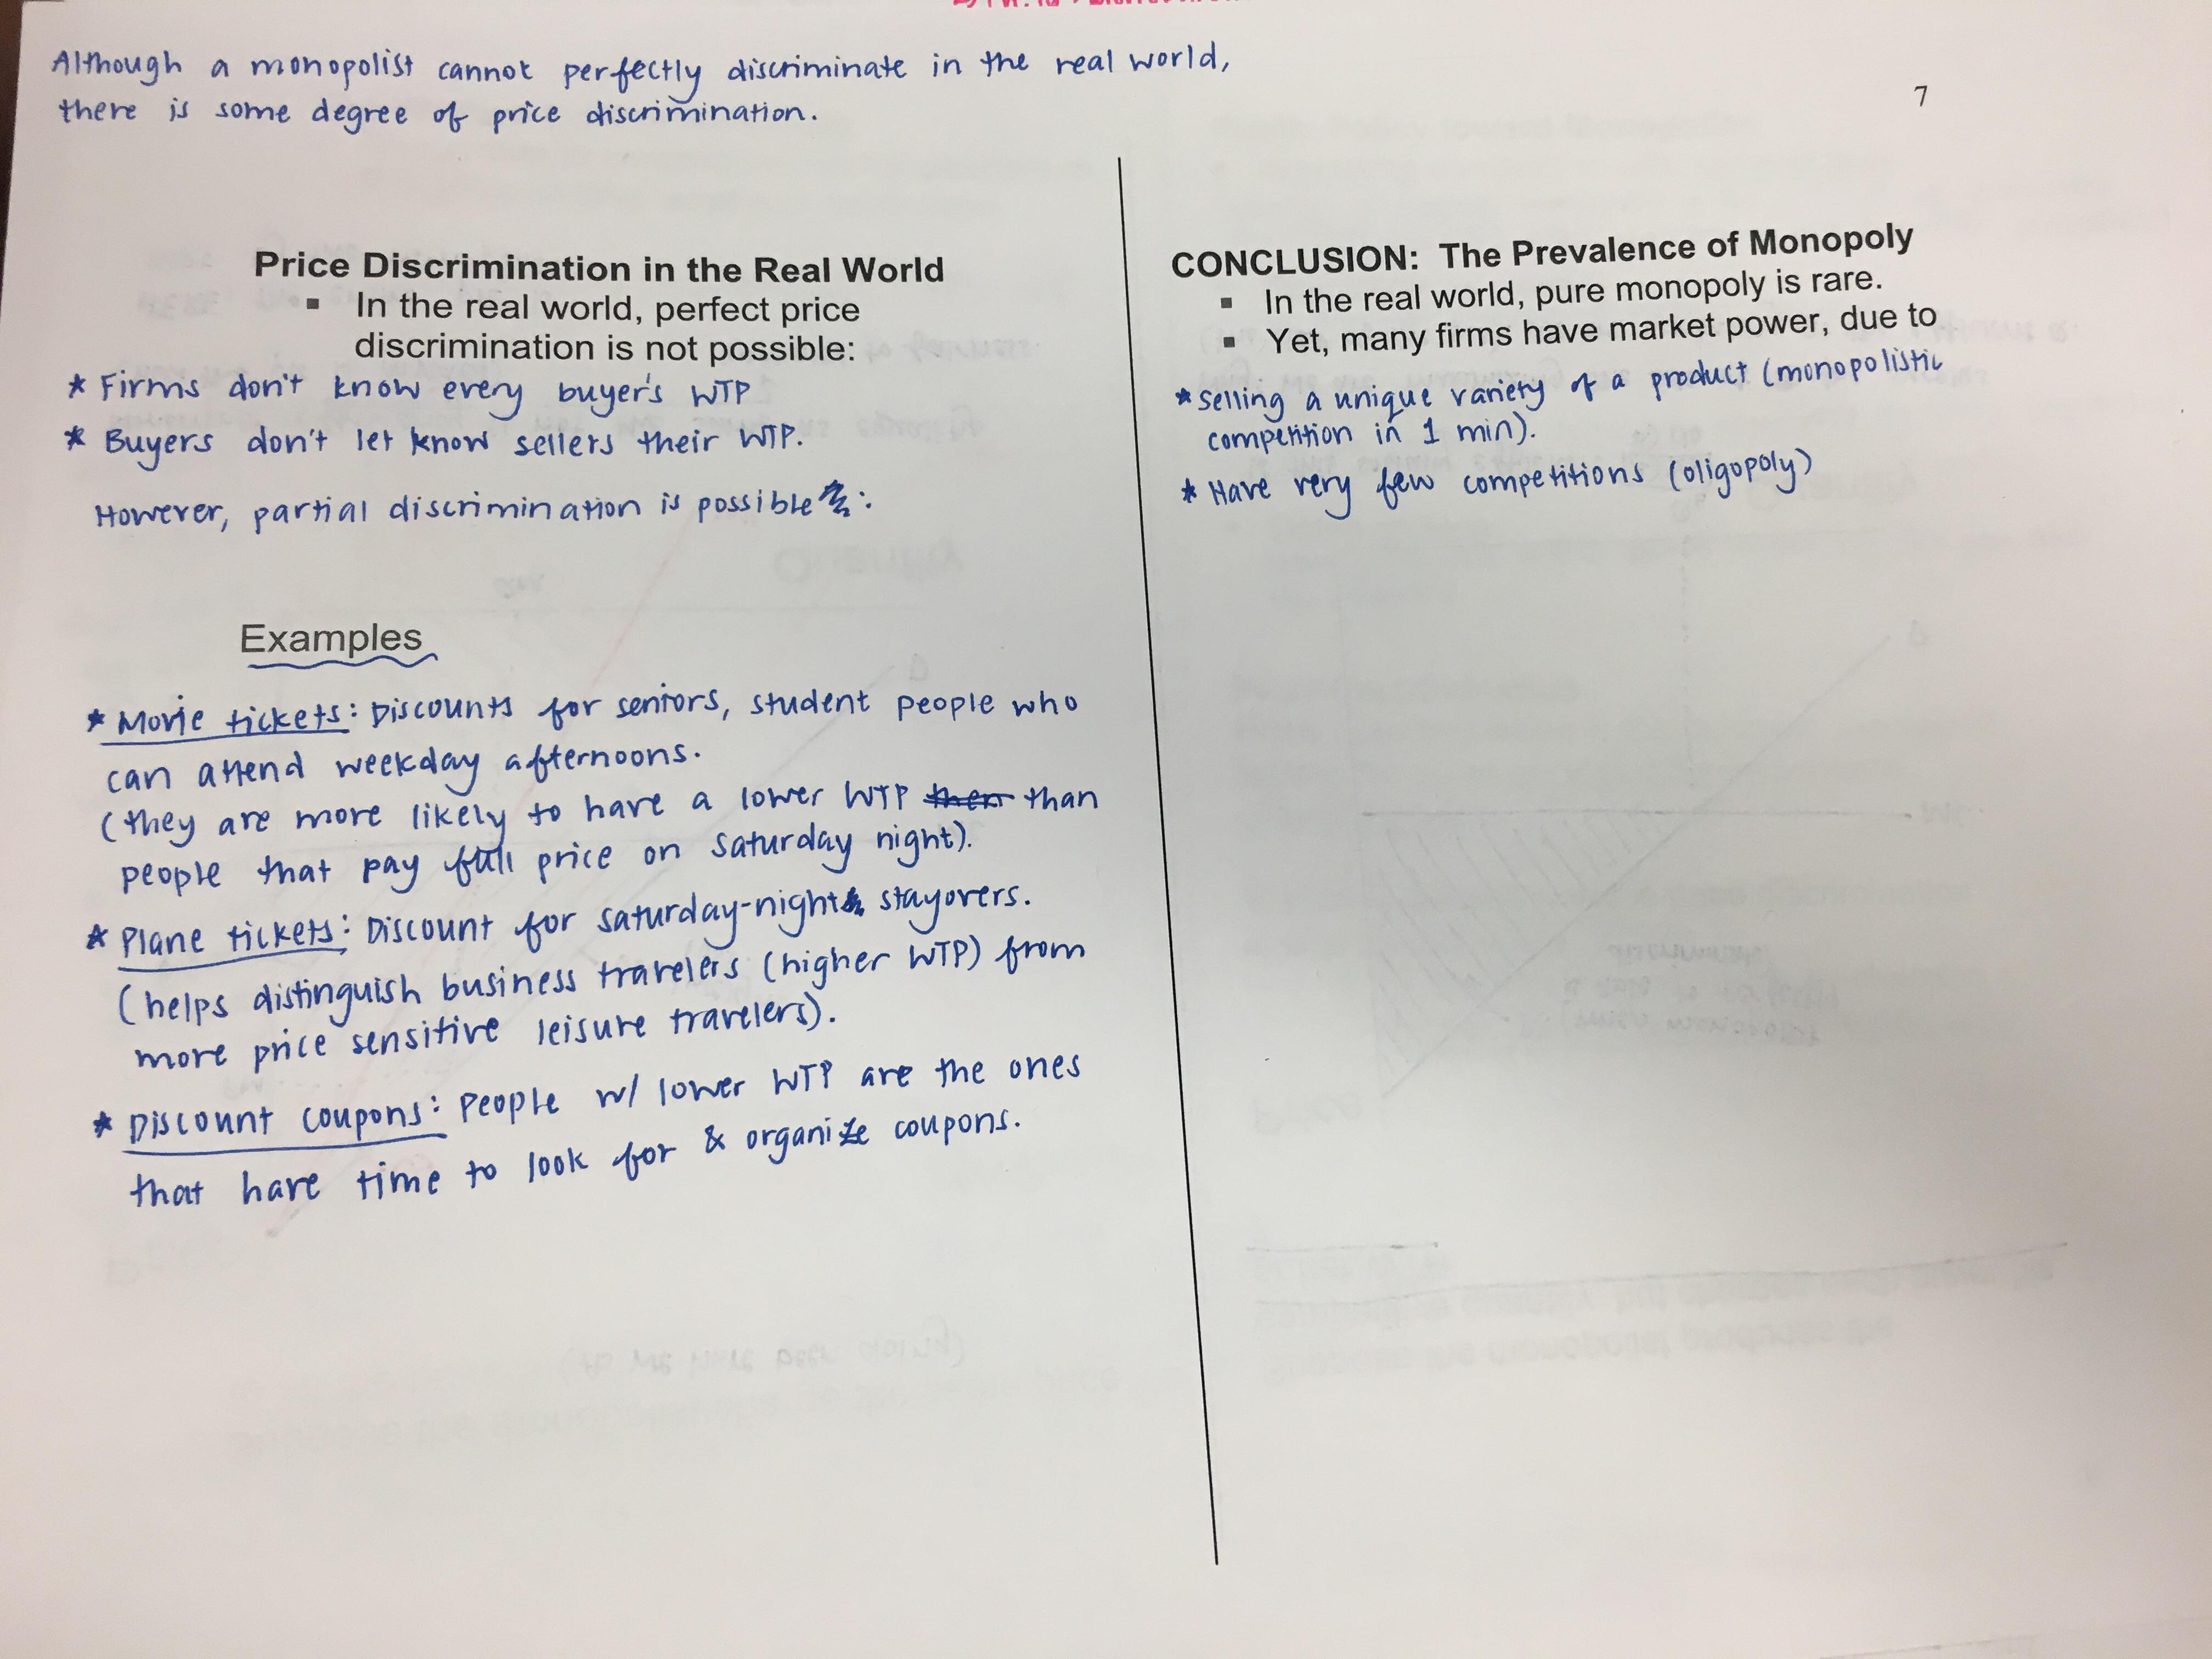 Although a monopolist cannot perfectly discriminate in the real world,
there is some degree of price discrimination.
7
Price Discrimination in the Real World
▪ In the real world, perfect price
discrimination is not possible:
* Firms don't know every buyer's WTP
* Buyers don't let know sellers their WTP.
However, partial discrimination is possible :
Examples
* Movie tickets: Discounts for seniors, student people who
can attend weekday afternoons.
(they are more likely to have a lower WTP then than
people that pay full price on saturday night).
* Plane tickets: Discount for saturday-night stayovers.
(helps distinguish business travelers (higher WTP) from
more price sensitive leisure travelers).
* Discount coupons: People w/ lower WTP are the ones
that have time to look for & organize coupons.
CONCLUSION: The Prevalence of Monopoly
▪ In the real world, pure monopoly is rare.
▪ Yet, many firms have market power, due to
* selling a unique variety of a product (monopolistic
competition in 1 min).
* Have very few competitions (oligopoly)